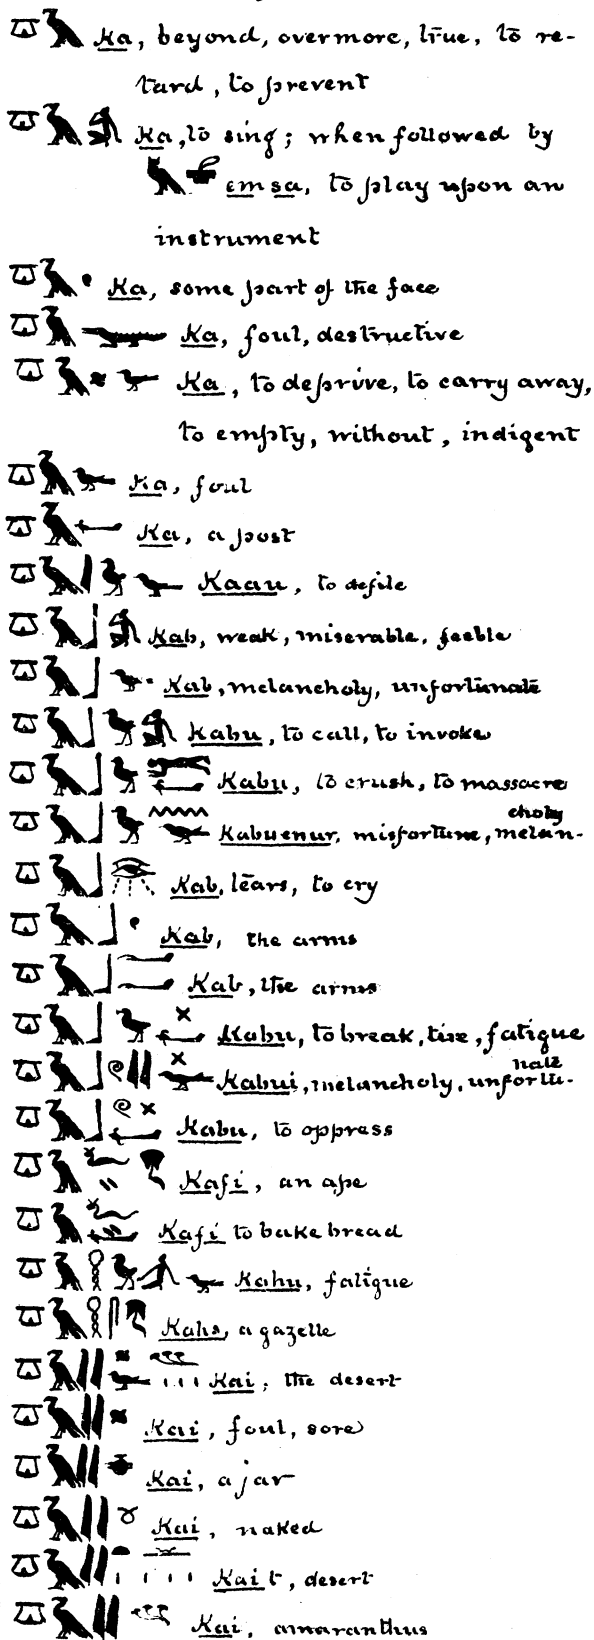 Ka, beyond, overmore, true, to re-
tard, to prevent
Ka, to sing; when followed by
em sa, to play upon an
instrument
Ka, some part of the face
Ka, foul, destructive
Ka, to deprive, to carry away,
to empty, without, indigent
Ka, foul
Ka, a post
Kaau, to defile
Kab, weak, miserable, feeble
Kab, melancholy, unfortunate
Kabu, to call, to invoke
Kabu, to crush, to massacre
Kabuenur, misfortune, melan-
choly
Kab, tears, to cry
Kab, the arms
Kab, the arms
Kabu, to break, tire, fatigue
Kabui, melancholy, unfortu-
nate
Kabu, to oppress
Kafi, an ape
Kafi to bake bread
Kahu, fatigue
Kahs, a gazelle
Kai, the desert
Kai, foul, sore
Kai, a jar
Kai, naked
Kait, desert
Kai, amaranthus